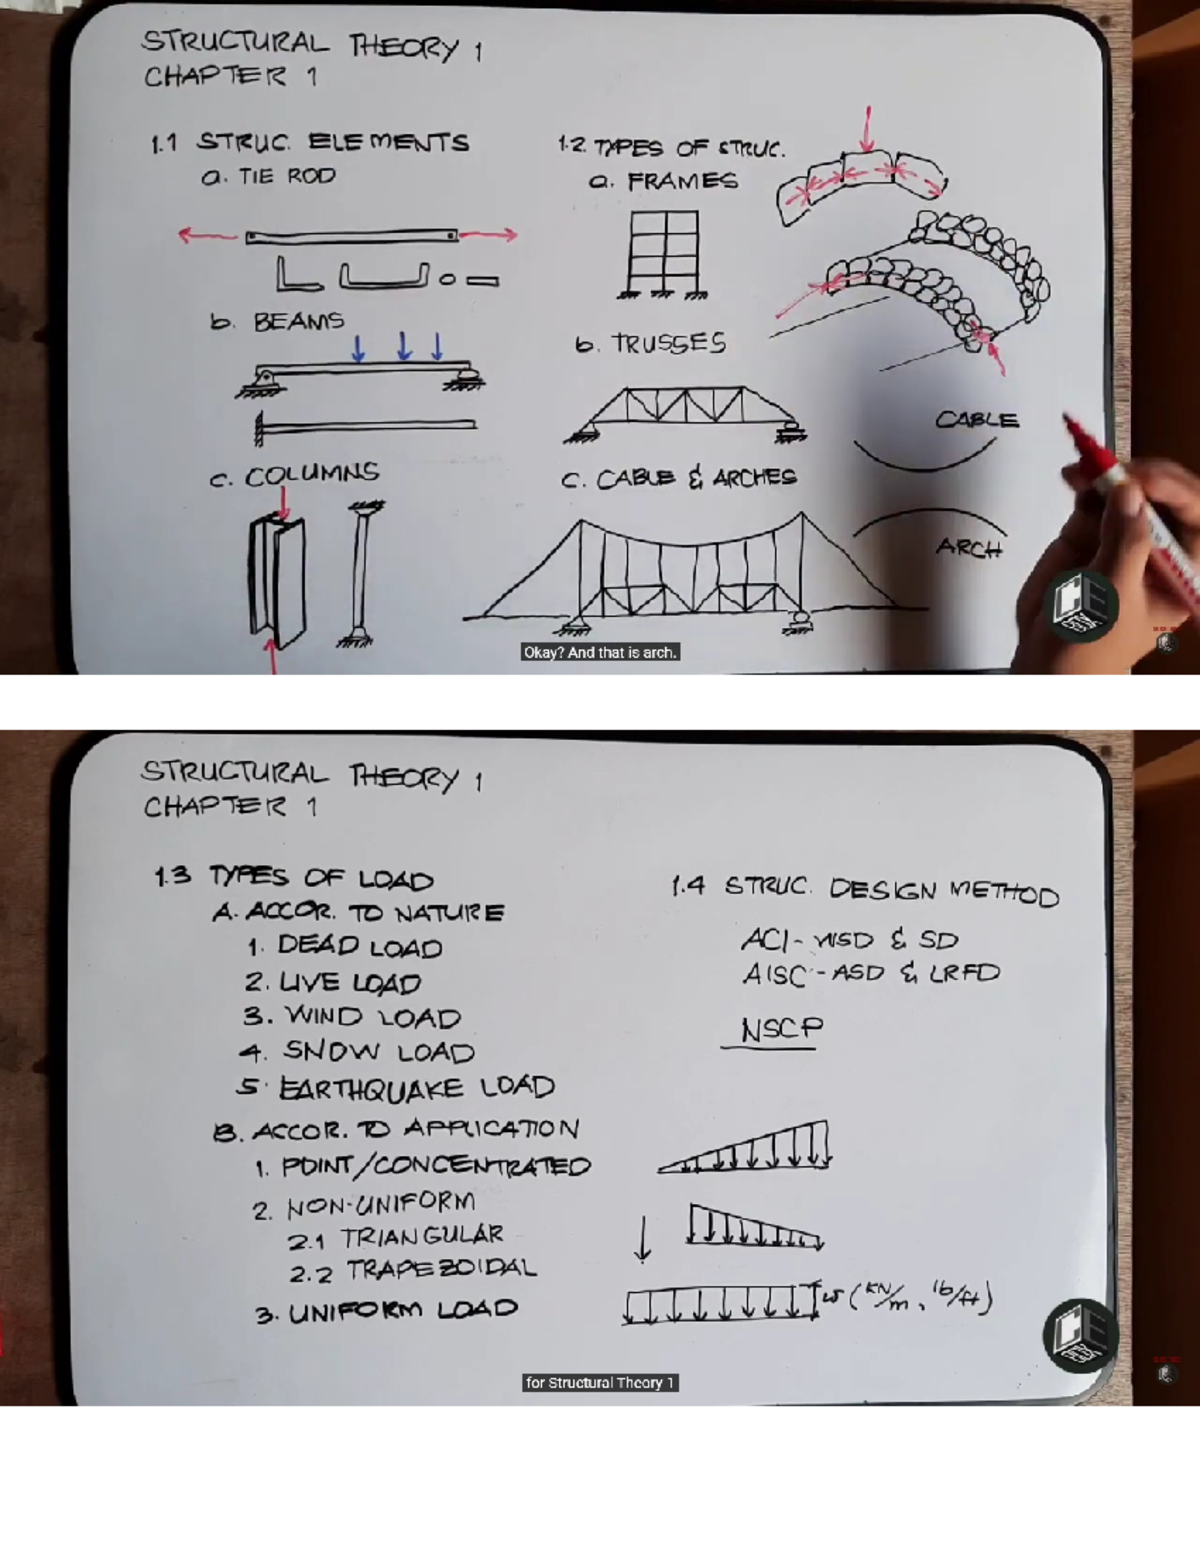 STRUCTURAL THEORY 1
CHAPTER 1
1.1 STRUC. ELEMENTS
a. TIE ROD
b. BEAMS
c. COLUMNS
1.2. TYPES OF STRUC.
a. FRAMES
b. TRUSSES
c. CABLE & ARCHES
CABLE
ARCH
Okay? And that is arch.
STRUCTURAL THEORY 1
CHAPTER 1
1.3 TYPES OF LOAD
A. ACCOR. TO NATURE
1. DEAD LOAD
2. LIVE LOAD
3. WIND LOAD
4. SNOW LOAD
5. EARTHQUAKE LOAD
B. ACCOR. TO APPLICATION
1. POINT/CONCENTRATED
2. NON-UNIFORM
2.1 TRIANGULAR
2.2 TRAPEZOIDAL
3. UNIFORM LOAD
1.4 STRUC. DESIGN METHOD
ACI - WSD & SD
AISC - ASD & LRFD
NSCP
w (kN/m, lb/ft)
for Structural Theory 1